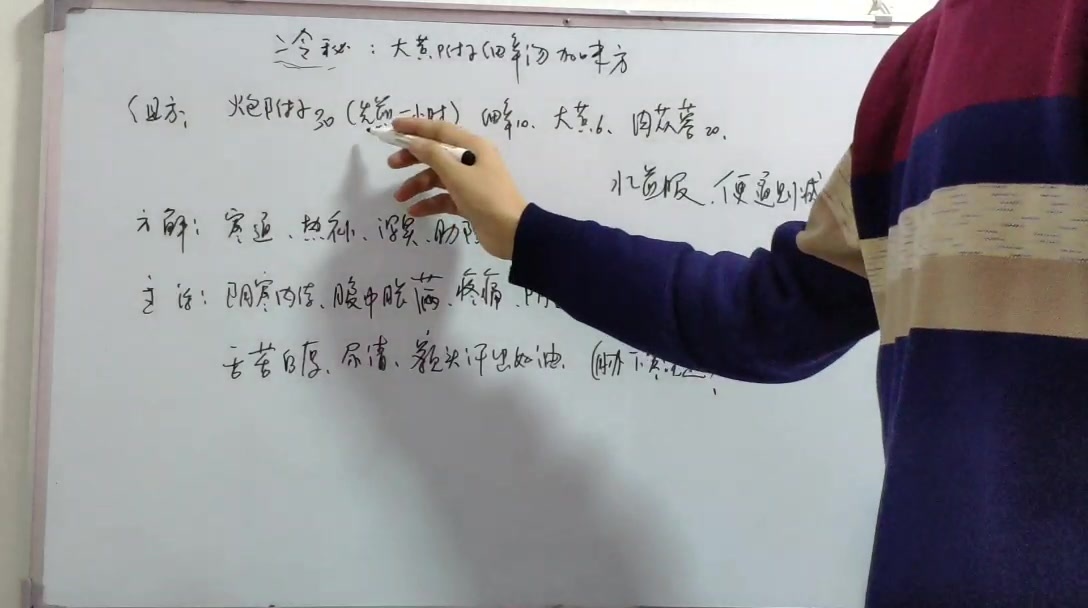 冷秘：大黄附子细辛汤加味方
组方：炮附子30（先煎一小时）细辛10、大黄6、肉苁蓉20、
水煎服、便通则减
方解：寒通、热补、润燥、助阳
主治：阴寒内结、腹中胀满、疼痛、阴
舌苔白厚、尿清、额头汗出如油、（胁下